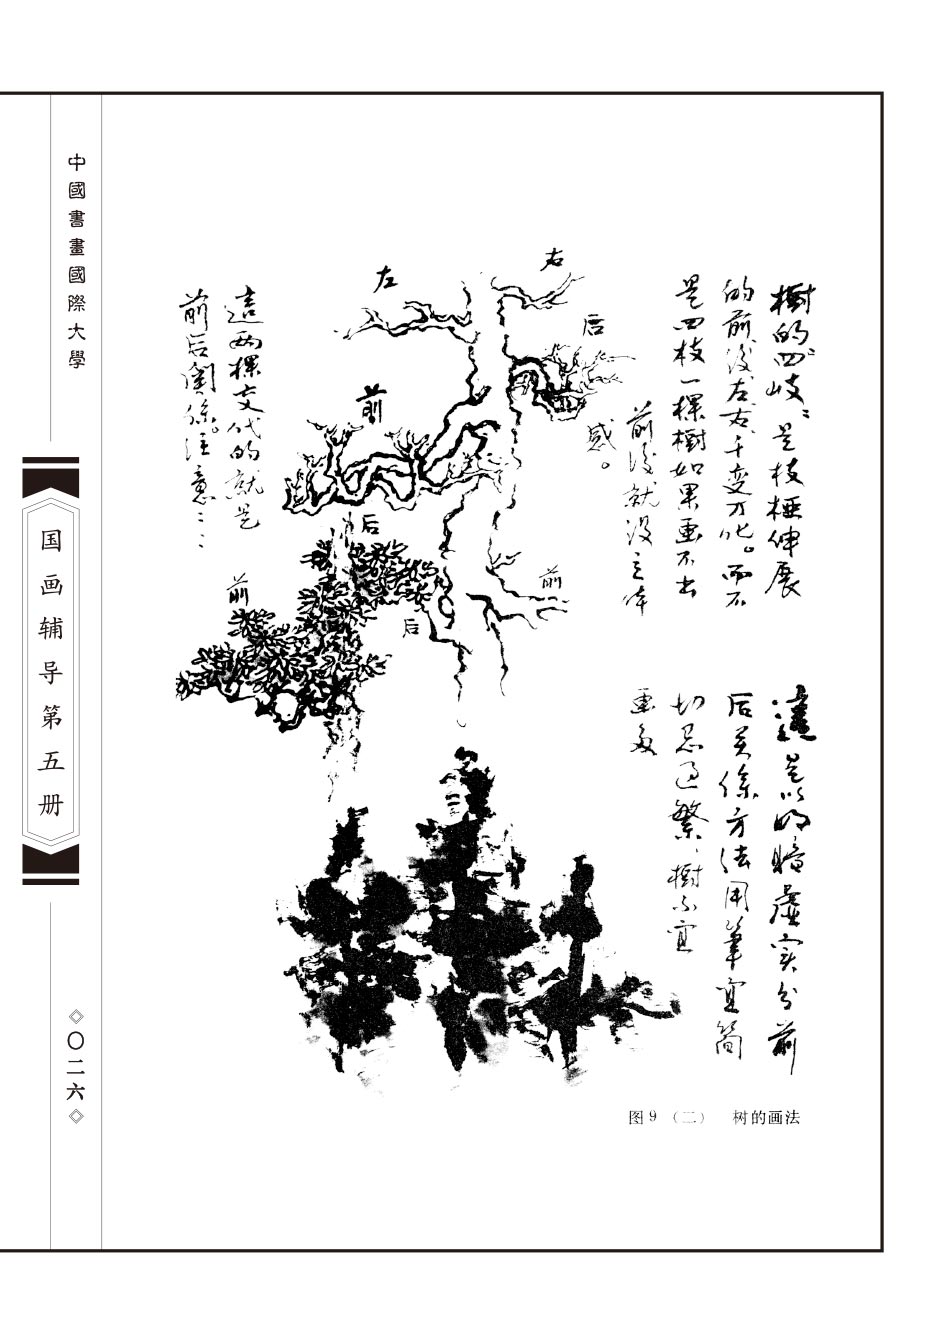 中國書畫國際大學
国画辅导第五册
〇二六
樹的"四歧"是枝極伸展
的前後左右千变万化。而不
是四枝一棵樹如果画不出
前後就没立体
感。
右
左
后
前
后
前
前
后
這两棵交代的就是
前后關係。注意：：
這是以明暗虚实分前
后关係方法用筆宜简
切忌过繁、樹不宜
画多
图9（二） 树的画法